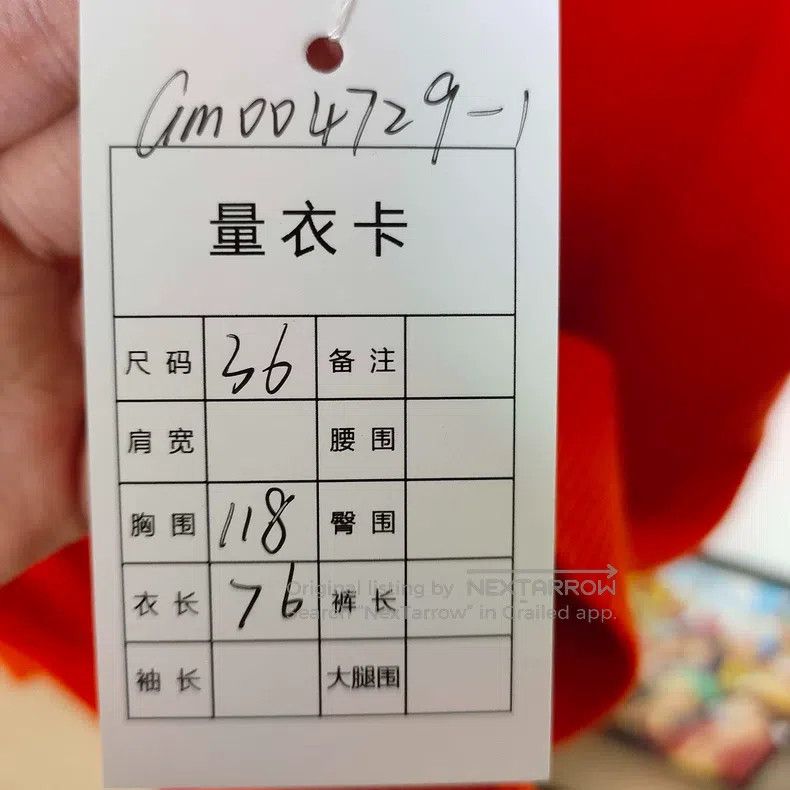 Gm004729-1
量衣卡
尺码 36 备注
肩宽 腰围
胸围 118 臀围
衣长 76 裤长
袖长 大腿围
Original listing by NEXTARROW
Search "NexTarrow" in Grailed app.